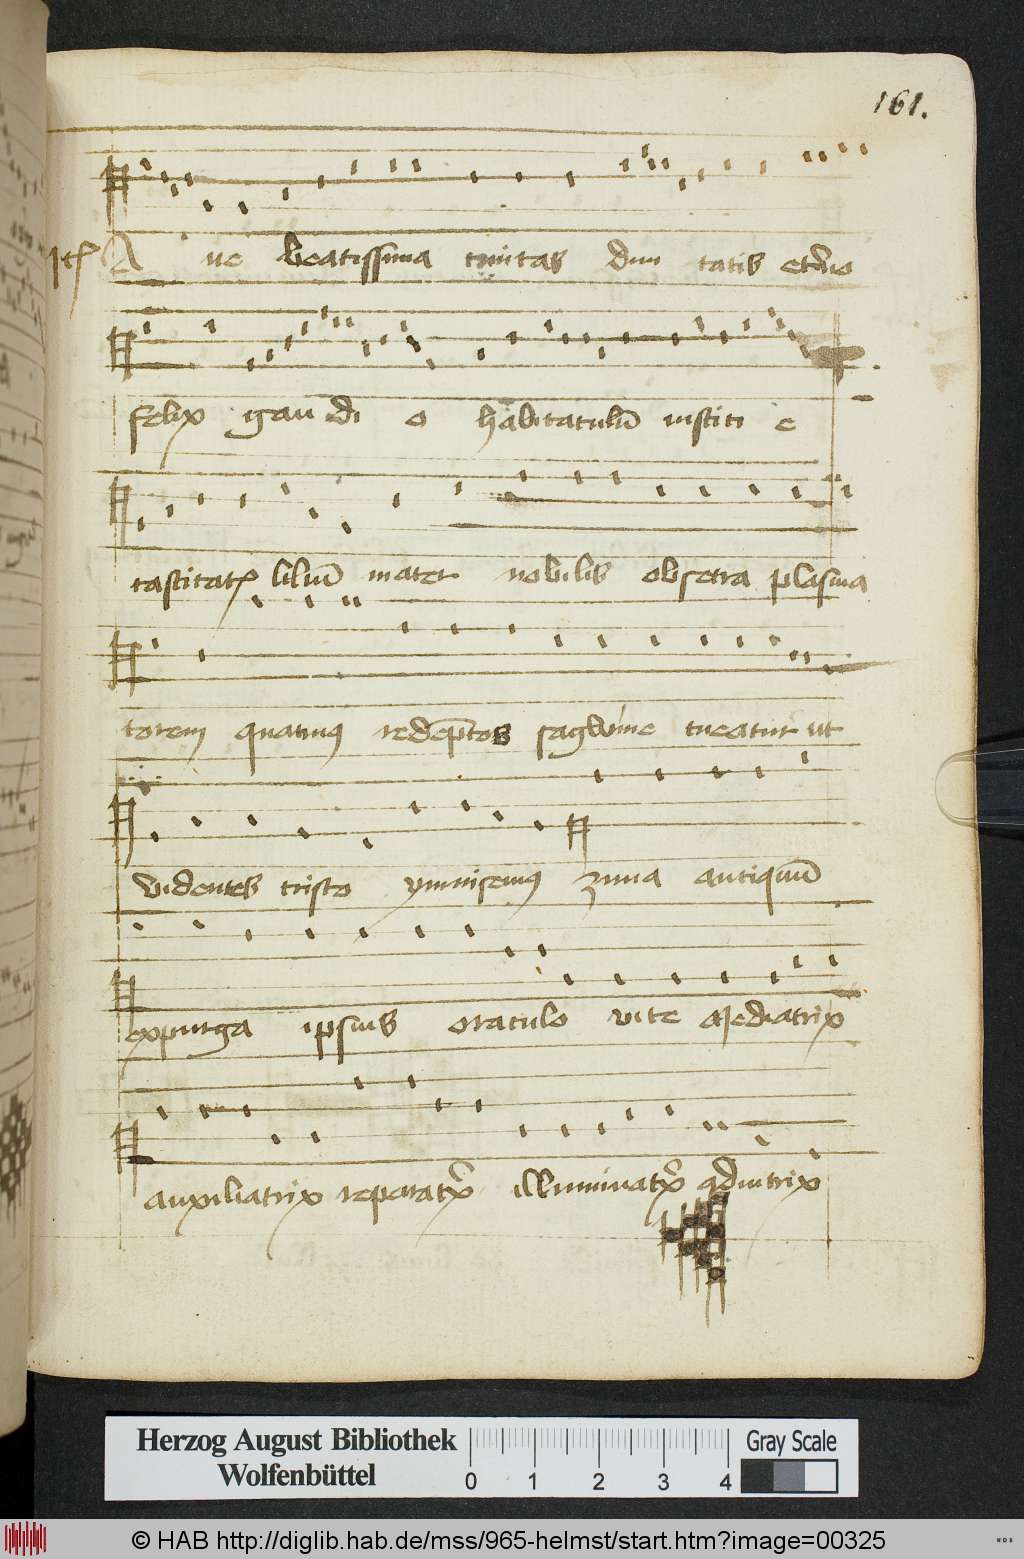 161.
A ue beatissima ciuitas diui tatis et'no
felix gau di o habitaculū iusticie
castitatꝭ liliū mater nobilis obsecra plasma
torem quatinꝰ redēptos sāgwine tueatur ut
videntes cristo ymnisemꝰ zima antiquū
expurga ipsius oraculo vite Mediatrix
auxiliatrix reparatx illuminatx adiutrix
Herzog August Bibliothek
Wolfenbüttel
0 1 2 3 4
Gray Scale
© HAB http://diglib.hab.de/mss/965-helmst/start.htm?image=00325